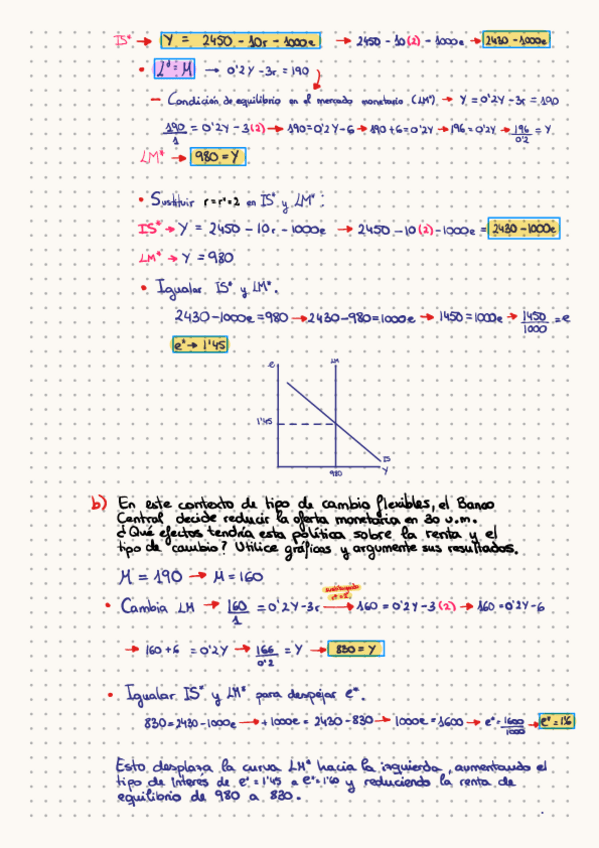 IS* → Y = 2450 - 10r - 1000e → 2450 - 10(2) - 1000e → 2430 - 1000e
• Lᵈ = M → 0'2Y - 3r = 190
- Condición de equilibrio en el mercado monetario (LM*) → Y = 0'2Y - 3r = 190
190/1 = 0'2Y - 3(2) → 190 = 0'2Y - 6 → 190 + 6 = 0'2Y → 196 = 0'2Y → 196/0'2 = Y
LM* → 980 = Y
• Sustituir r = r* = 2 en IS* y LM*:
IS* → Y = 2450 - 10r - 1000e → 2450 - 10(2) - 1000e = 2430 - 1000e
LM* → Y = 980
• Igualar IS* y LM*.
2430 - 1000e = 980 → 2430 - 980 = 1000e → 1450 = 1000e → 1450/1000 = e
e* → 1'45
e LM
1'45
IS
980 Y
b) En este contexto de tipo de cambio flexibles, el Banco
Central decide reducir la oferta monetaria en 30 u.m.
¿Qué efectos tendría esta política sobre la renta y el
tipo de cambio? Utilice gráficas y argumente sus resultados.
M = 190 → M = 160
• Cambia LM → 160/1 = 0'2Y - 3r → 160 = 0'2Y - 3(2) → 160 = 0'2Y - 6
→ 160 + 6 = 0'2Y → 166/0'2 = Y → 830 = Y
• Igualar IS* y LM* para despejar e*.
830 = 2430 - 1000e → +1000e = 2430 - 830 → 1000e = 1600 → e* = 1600/1000 → e* = 1'6
Esto desplaza la curva LM* hacia la izquierda, aumentando el
tipo de interés de e* = 1'45 a e* = 1'60 y reduciendo la renta de
equilibrio de 980 a 830.